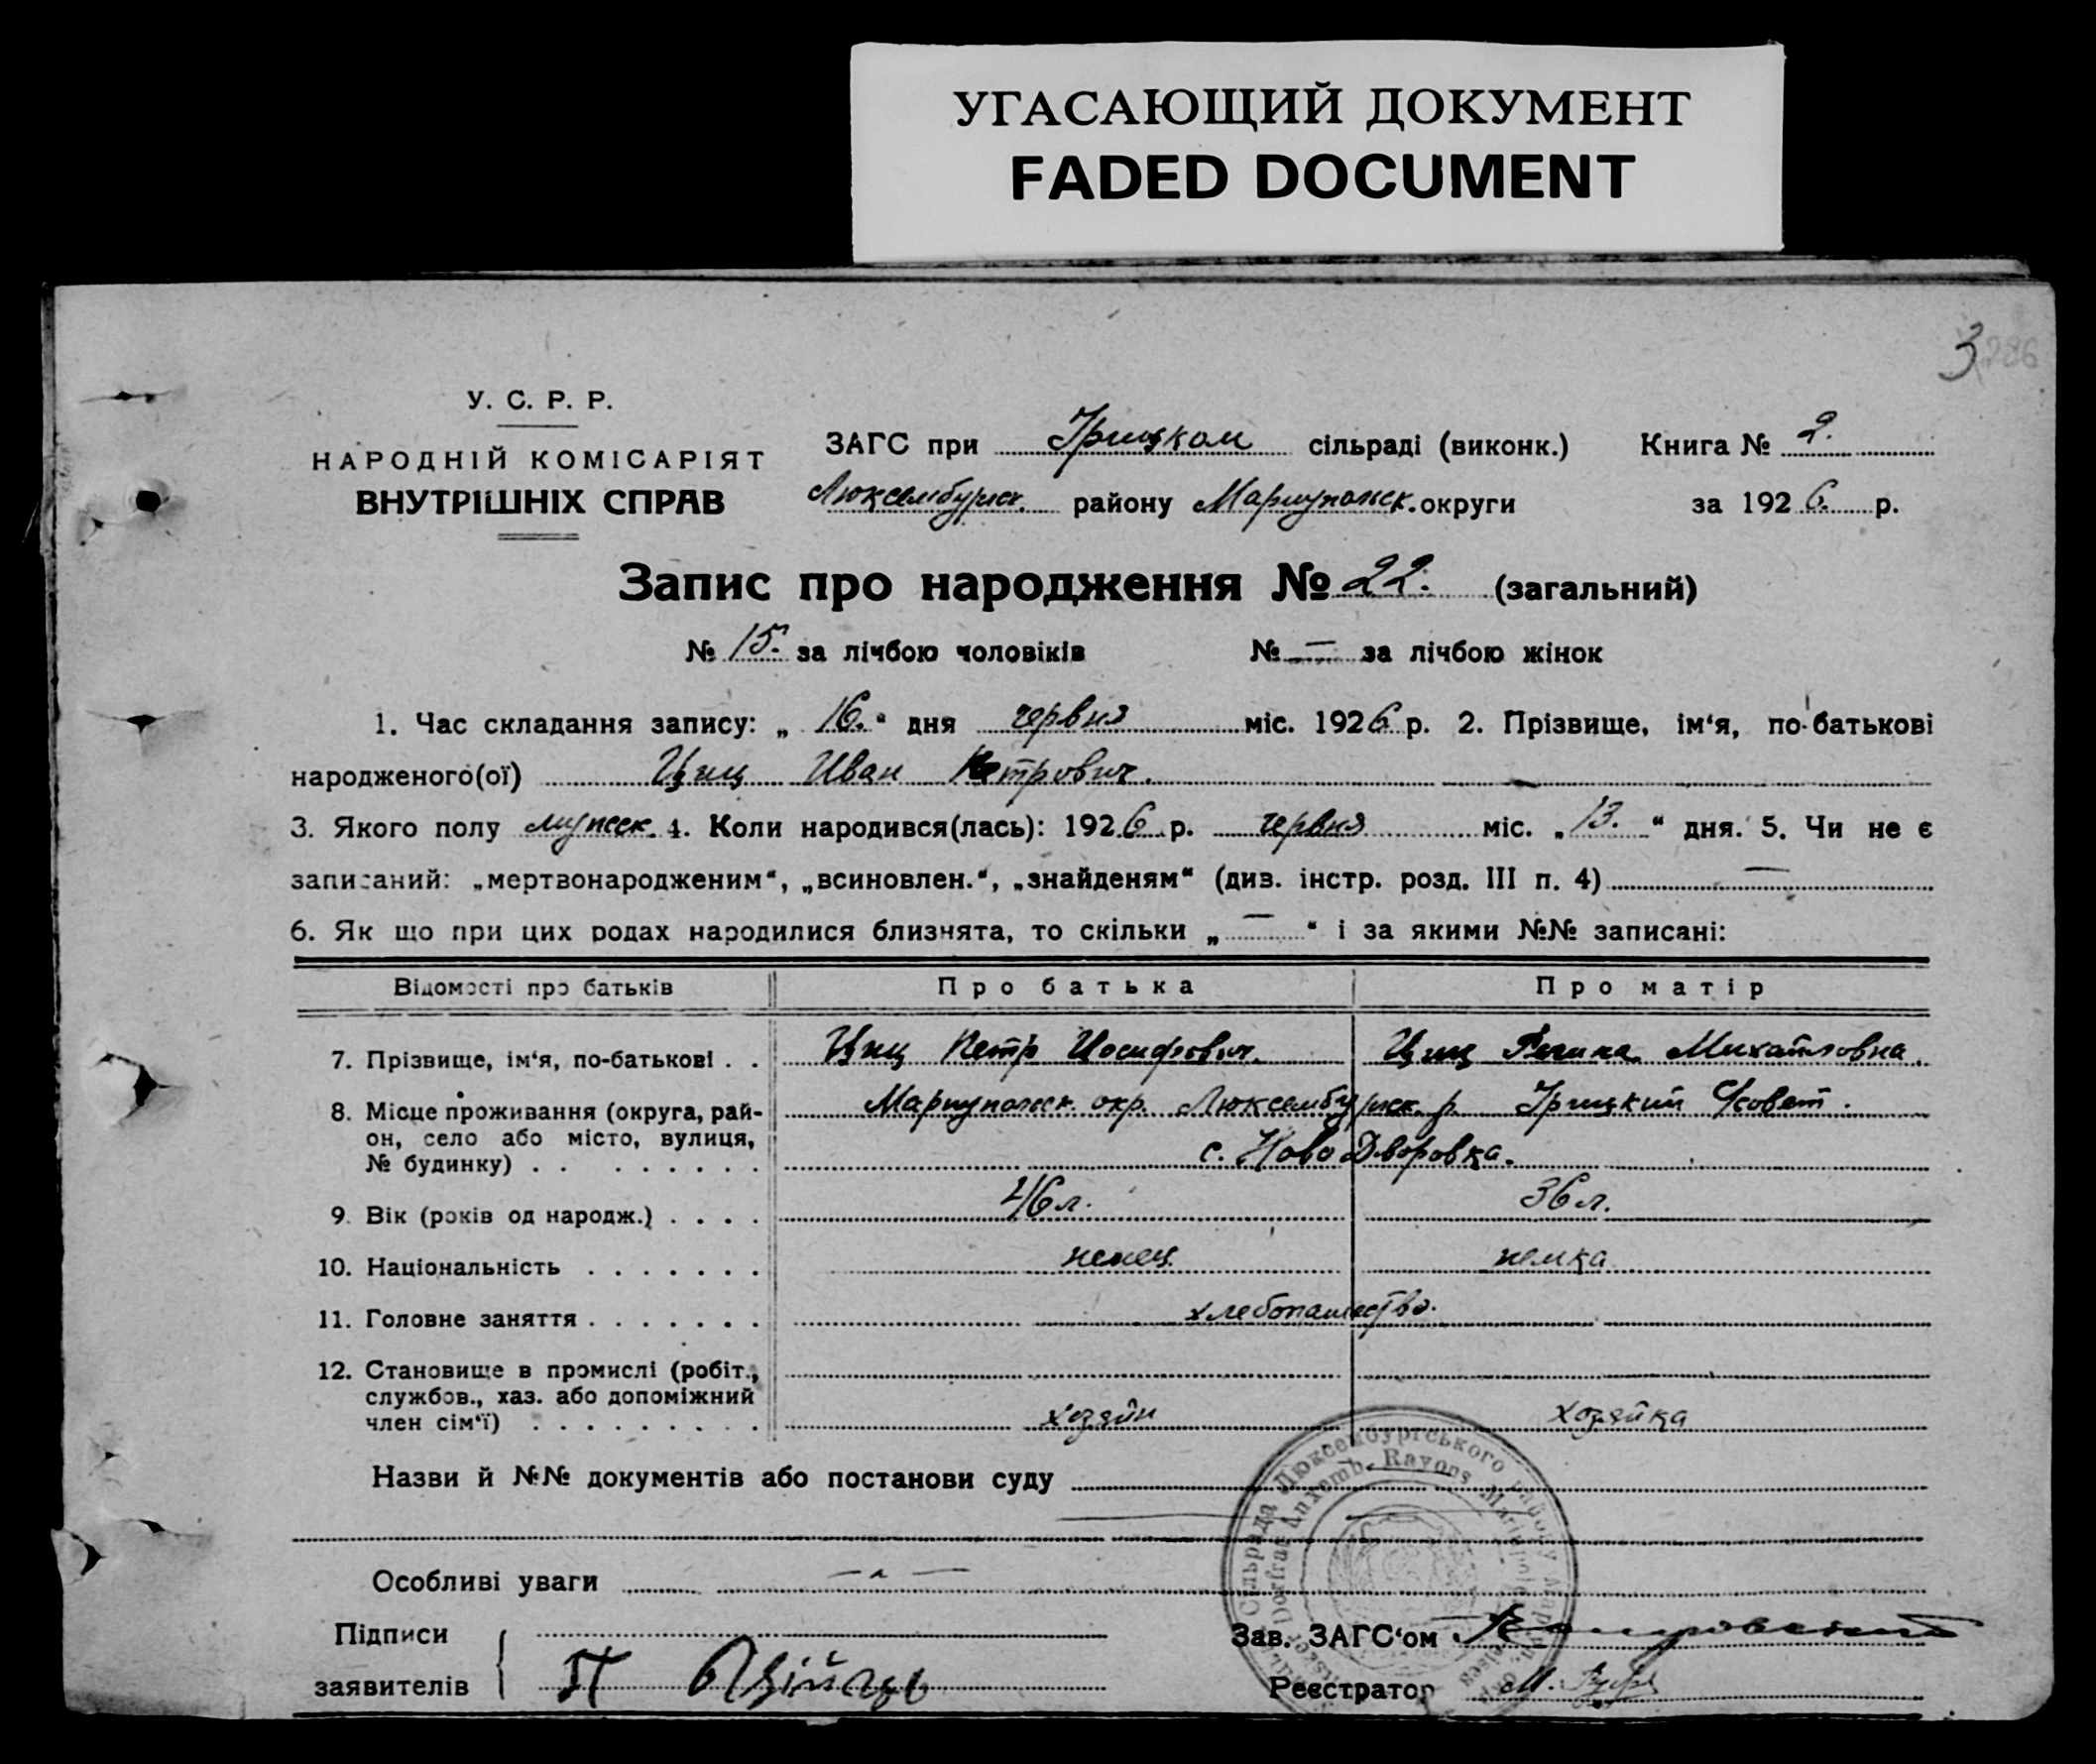 УГАСАЮЩИЙ ДОКУМЕНТ
FADED DOCUMENT
3
286
У. С. Р. Р.
НАРОДНІЙ КОМІСАРІЯТ
ВНУТРІШНІХ СПРАВ
ЗАГС при сільраді (виконк.) Книга № 2.
Люксембургск. району Мариупольск. округи за 1926. р.
Запис про народження № 22. (загальний)
№ 15. за лічбою чоловіків № — за лічбою жінок
1. Час складання запису: „ 16. “ дня червня міс. 1926 р. 2. Прізвище, ім‘я, по-батькові
народженого(ої) Циц Иван Петрович.
3. Якого полу мужеск. 4. Коли народився(лась): 1926 р. червня міс. „ 13. “ дня. 5. Чи не є
записаний: „мертвонародженим“, „всиновлен.“, „знайденям“ (див. інстр. розд. III п. 4) —
6. Як що при цих родах народилися близнята, то скільки „ — “ і за якими №№ записані:
Відомості про батьків Про батька Про матір
7. Прізвище, ім‘я, по-батькові . . Циц Петр Иосифович. Циц Регина Михайловна.
8. Місце проживання (округа, рай- Мариупольск. окр. Люксембургск. р. Совет.
он, село або місто, вулиця, с. Ново Дворовка.
№ будинку) . . . . . . . .
9. Вік (років од народж.) . . . . 46 л. 36 л.
10. Національність . . . . . . . немец немка
11. Головне заняття . . . . . . . хлебопашество.
12. Становище в промислі (робіт.,
службов., хаз. або допоміжний
член сім‘ї) . . . . . . . . . хозяин хозяйка
Назви й №№ документів або постанови суду
Особливі уваги
Підписи
заявителів П
Зав. ЗАГС‘ом
Реєстратор М.
Сільрада Люксембургського району
Dorfrat Luxemb. Rayons